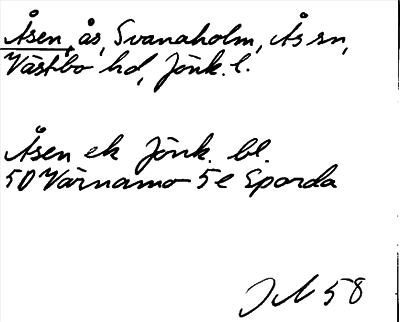 Åsen, ås, Svanaholm, Ås sn,
Västbo hd, Jönk. l.
Åsen ek Jönk. bl.
50 Värnamo 5e Sporda
58